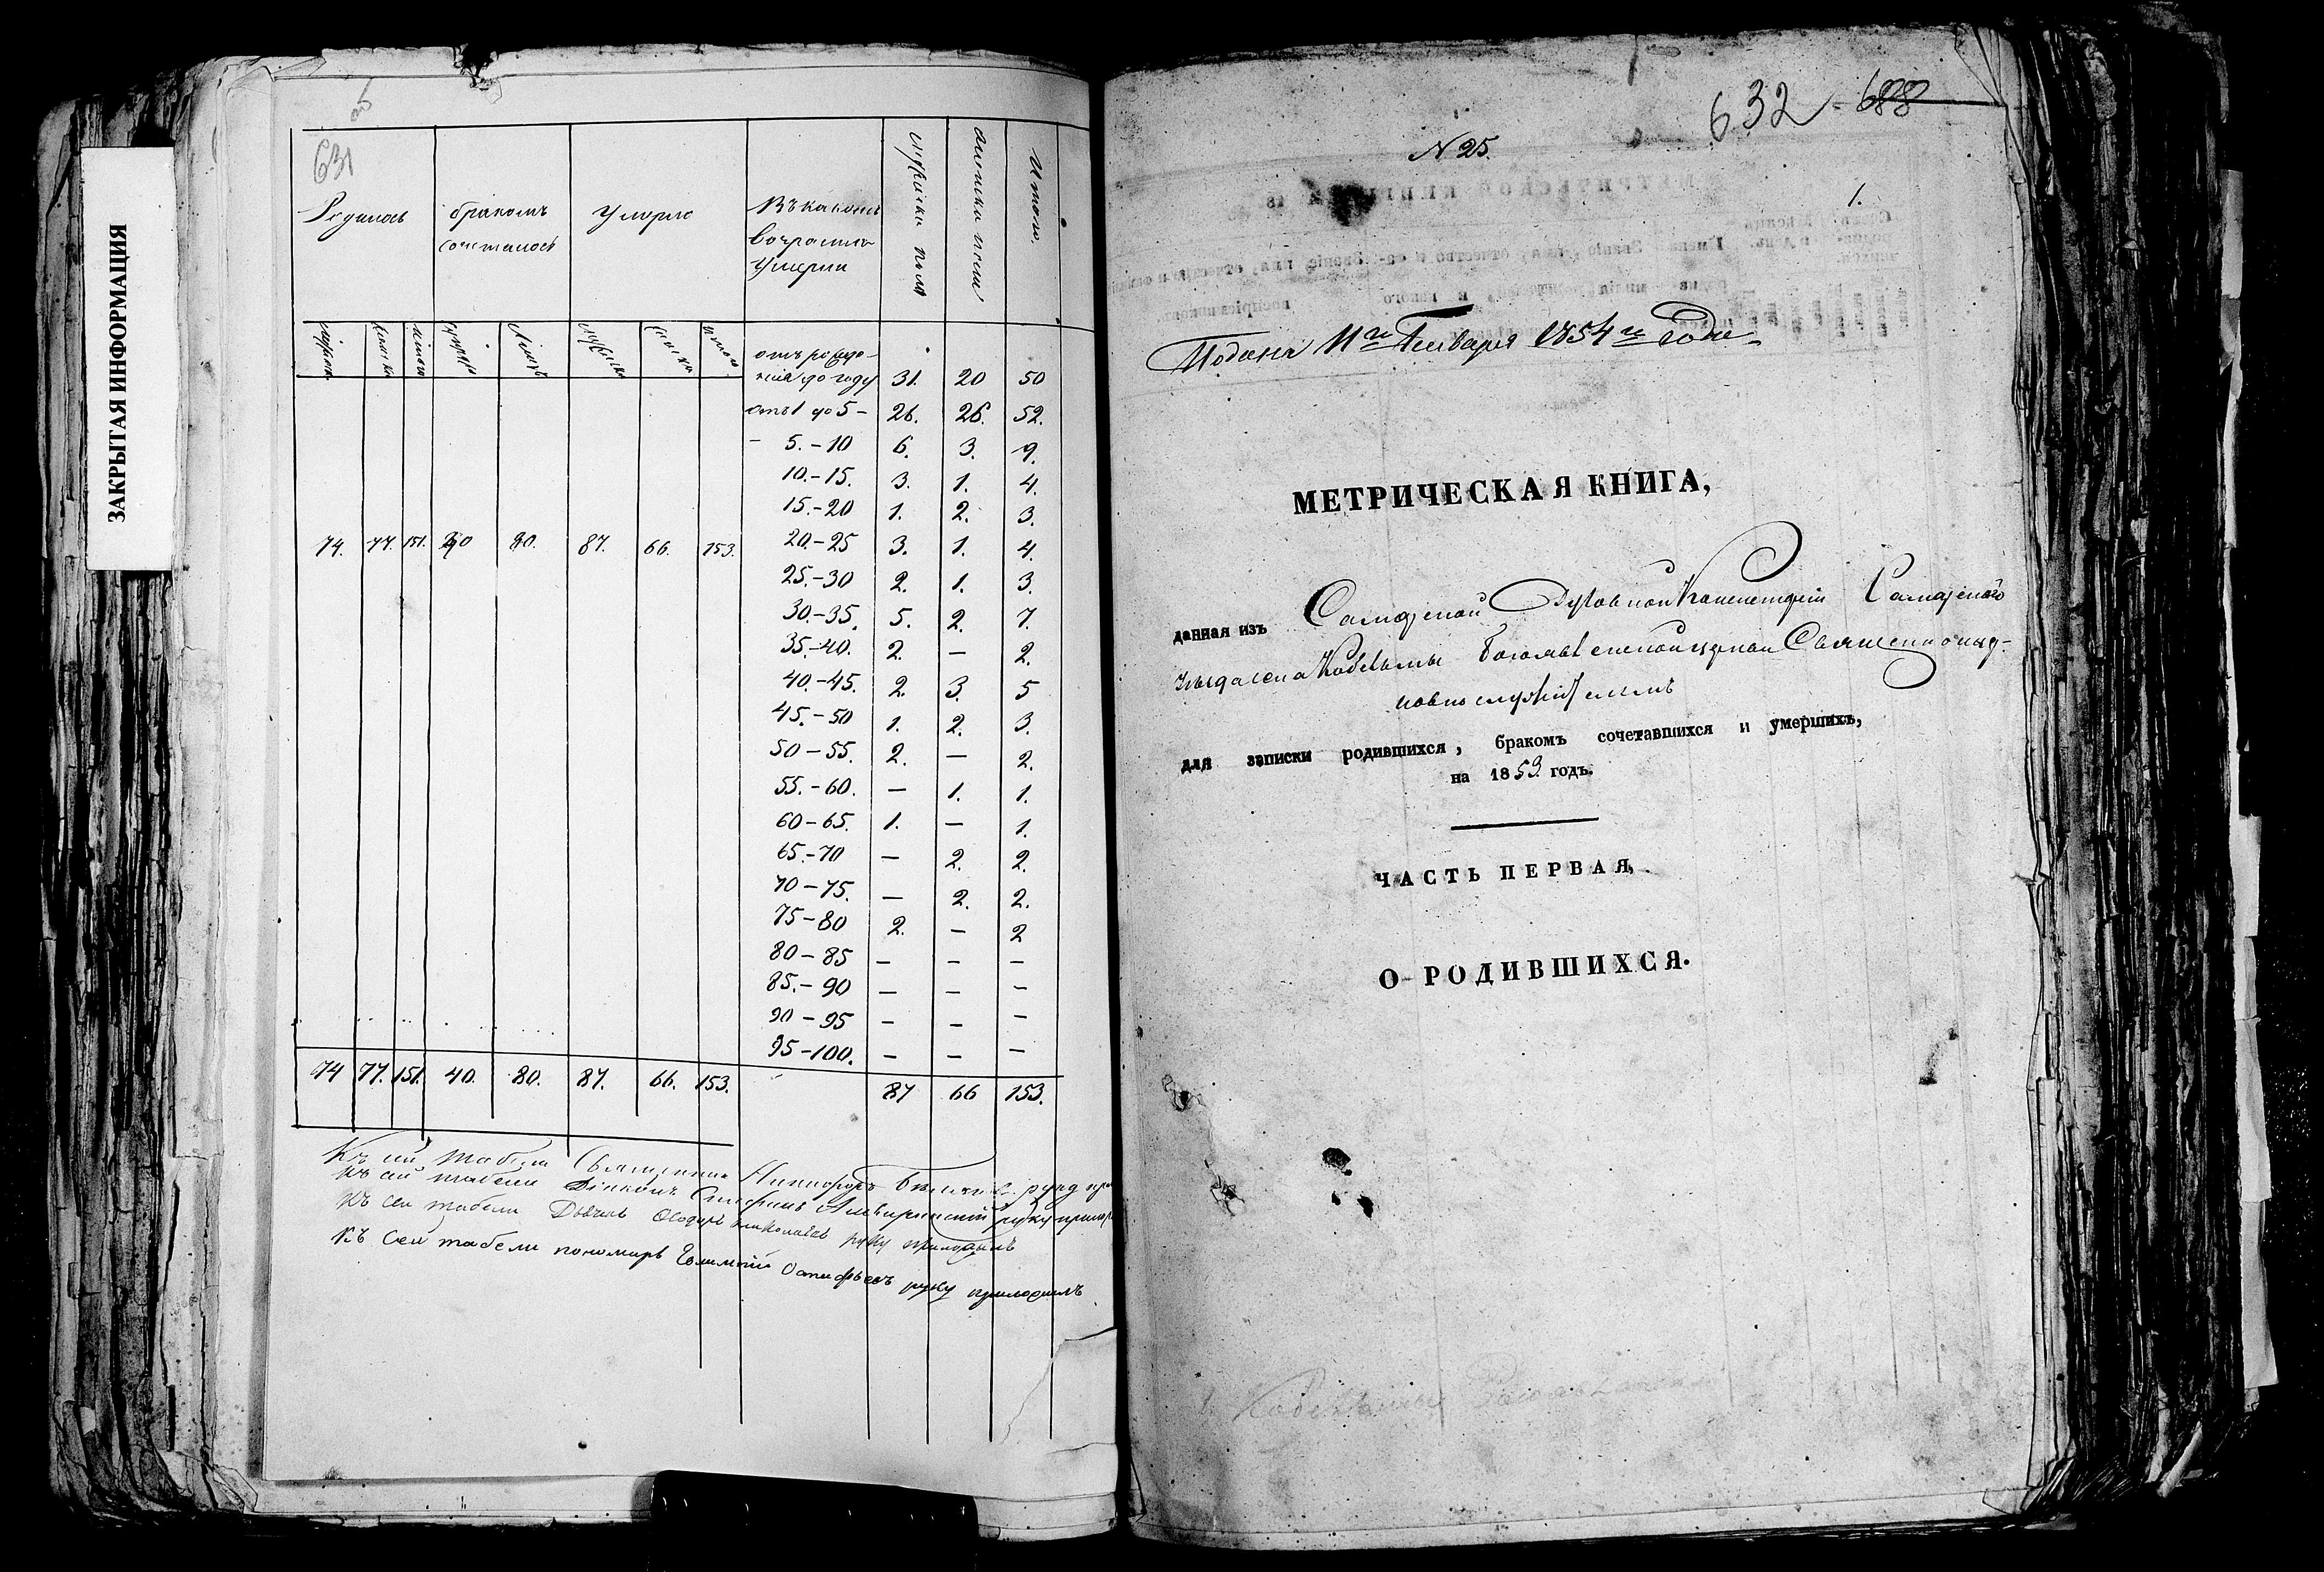 ЗАКРЫТАЯ ИНФОРМАЦИЯ
об
631
Родилось бракомъ сочеталось Умерло Въ какомъ возрастѣ умерли мужеска пола женска пола Итого.
отъ рожде-
нія до году 31. 20 50
отъ 1 до 5- 26. 26. 52.
- 5.-10 6. 3. 9.
10.-15. 3. 1. 4.
15.-20 1. 2. 3.
74. 77. 151. 40 80. 87. 66. 153. 20.-25 3. 1. 4.
25.-30 2. 1. 3.
30.-35. 5. 2. 7.
35.-40. 2. — 2.
40.-45. 2. 3. 5
45.-50 1. 2. 3.
50-55. 2. — 2.
55.-60. — 1. 1.
60-65. 1. — 1.
65.-70 — 2. 2.
70-75. — 2. 2.
75-80 2. — 2
80-85 — — —
85.-90 — — —
90-95 — — —
95-100. — — —
74 77. 151. 40. 80. 87. 66. 153. 87 66 153.
Къ сей табели Священникъ Никифоръ
Къ сей табели Діаконъ Стефанъ руку
Къ сей табели Дьячекъ Ѳеодоръ руку приложилъ
Къ сей табели пономарь Евѳимій руку приложилъ
632 - 688
N 25.
1.
Подана 11го Января 1854го года
МЕТРИЧЕСКАЯ КНИГА,
данная изъ Самарской Духовной Консисторіи Самарскаго
уѣзда села Кобельмы Богоявленской церкви Священноцер-
ковнослужителямъ
для записки родившихся, бракомъ сочетавшихся и умершихъ,
на 1853 годъ.
ЧАСТЬ ПЕРВАЯ,
О РОДИВШИХСЯ.